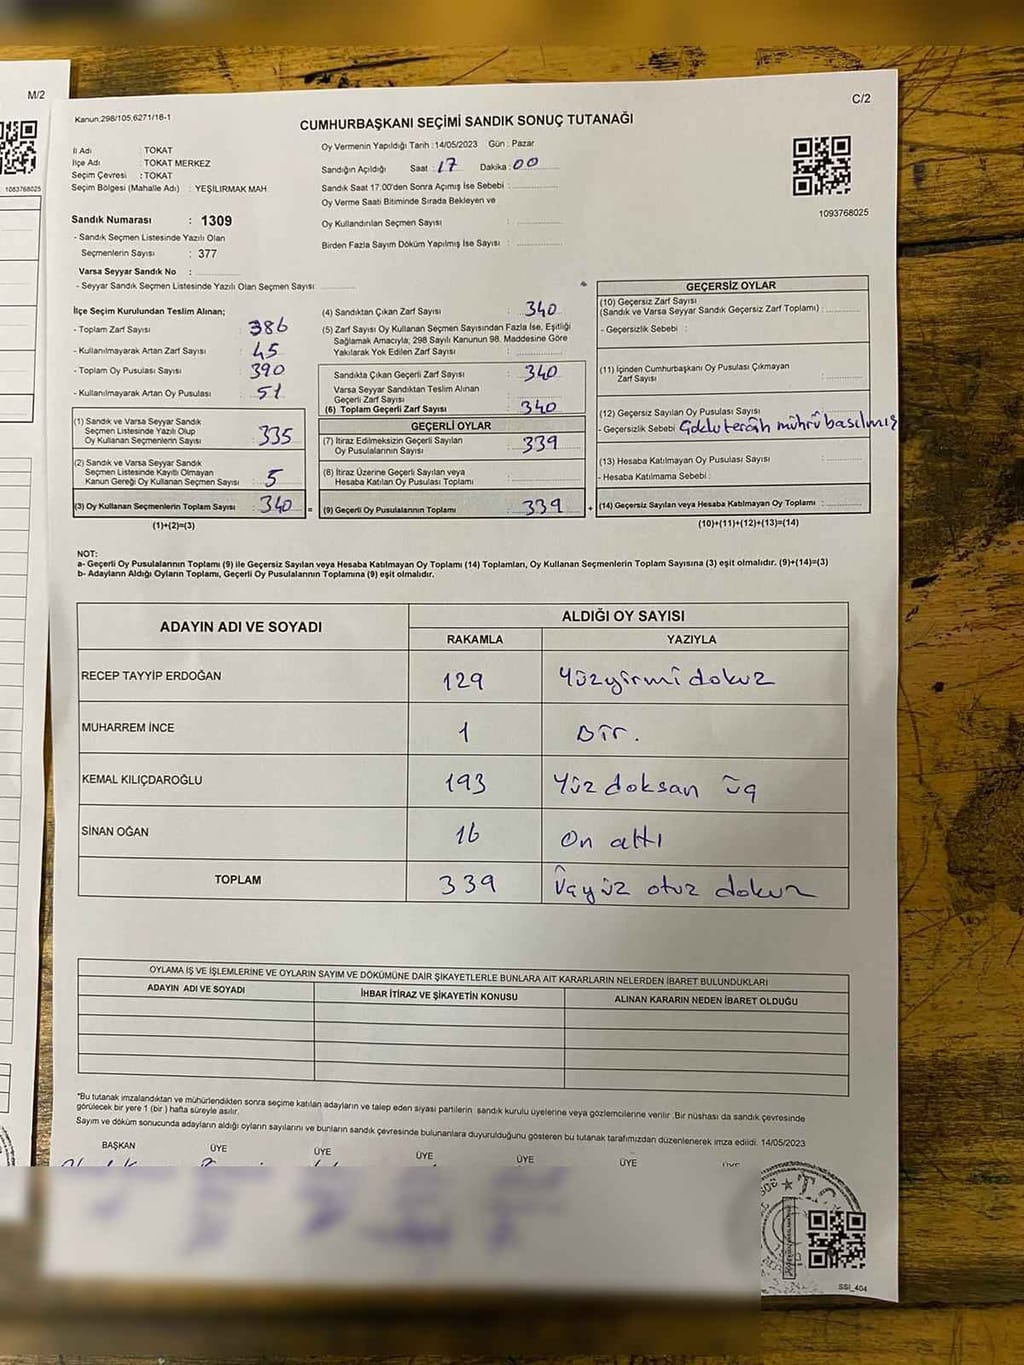 M/2
1083768025
Kanun;298/105,6271/18-1
C/2
CUMHURBAŞKANI SEÇİMİ SANDIK SONUÇ TUTANAĞI
İl Adı : TOKAT
İlçe Adı : TOKAT MERKEZ
Seçim Çevresi : TOKAT
Seçim Bölgesi (Mahalle Adı) : YEŞİLIRMAK MAH.
Sandık Numarası : 1309
- Sandık Seçmen Listesinde Yazılı Olan
Seçmenlerin Sayısı : 377
Varsa Seyyar Sandık No :
- Seyyar Sandık Seçmen Listesinde Yazılı Olan Seçmen Sayısı
Oy Vermenin Yapıldığı Tarih :14/05/2023 Gün : Pazar
Sandığın Açıldığı Saat : 17 Dakika : 00
Sandık Saat 17:00'den Sonra Açımış İse Sebebi :
Oy Verme Saati Bitiminde Sırada Bekleyen ve
Oy Kullandırılan Seçmen Sayısı :
Birden Fazla Sayım Döküm Yapılmış İse Sayısı :
1093768025
İlçe Seçim Kurulundan Teslim Alınan;
- Toplam Zarf Sayısı : 386
- Kullanılmayarak Artan Zarf Sayısı : 45
- Toplam Oy Pusulası Sayısı : 390
- Kullanılmayarak Artan Oy Pusulası : 51
(1) Sandık ve Varsa Seyyar Sandık
Seçmen Listesinde Yazılı Olup
Oy Kullanan Seçmenlerin Sayısı : 335
(2) Sandık ve Varsa Seyyar Sandık
Seçmen Listesinde Kayıtlı Olmayan
Kanun Gereği Oy Kullanan Seçmen Sayısı : 5
(3) Oy Kullanan Seçmenlerin Toplam Sayısı : 340
(1)+(2)=(3)
(4) Sandıktan Çıkan Zarf Sayısı : 340
(5) Zarf Sayısı Oy Kullanan Seçmen Sayısından Fazla İse, Eşitliği
Sağlamak Amacıyla, 298 Sayılı Kanunun 98. Maddesine Göre
Yakılarak Yok Edilen Zarf Sayısı :
Sandıkta Çıkan Geçerli Zarf Sayısı : 340
Varsa Seyyar Sandıktan Teslim Alınan
Geçerli Zarf Sayısı :
(6) Toplam Geçerli Zarf Sayısı : 340
GEÇERLİ OYLAR
(7) İtiraz Edilmeksizin Geçerli Sayılan
Oy Pusulalarının Sayısı : 339
(8) İtiraz Üzerine Geçerli Sayılan veya
Hesaba Katılan Oy Pusulası Toplamı :
= (9) Geçerli Oy Pusulalarının Toplamı : 339 +
GEÇERSİZ OYLAR
(10) Geçersiz Zarf Sayısı
(Sandık ve Varsa Seyyar Sandık Geçersiz Zarf Toplamı) :
- Geçersizlik Sebebi :
(11) İçinden Cumhurbaşkanı Oy Pusulası Çıkmayan
Zarf Sayısı :
(12) Geçersiz Sayılan Oy Pusulası Sayısı
- Geçersizlik Sebebi Çoklu tercih mührü basılmış
(13) Hesaba Katılmayan Oy Pusulası Sayısı :
- Hesaba Katılmama Sebebi :
(14) Geçersiz Sayılan veya Hesaba Katılmayan Oy Toplamı :
(10)+(11)+(12)+(13)=(14)
NOT:
a- Geçerli Oy Pusulalarının Toplamı (9) ile Geçersiz Sayılan veya Hesaba Katılmayan Oy Toplamı (14) Toplamları, Oy Kullanan Seçmenlerin Toplam Sayısına (3) eşit olmalıdır. (9)+(14)=(3)
b- Adayların Aldığı Oyların Toplamı, Geçerli Oy Pusulalarının Toplamına (9) eşit olmalıdır.
ADAYIN ADI VE SOYADI ALDIĞI OY SAYISI
RAKAMLA YAZIYLA
RECEP TAYYİP ERDOĞAN 129 Yüzyirmidokuz
MUHARREM İNCE 1 Bir.
KEMAL KILIÇDAROĞLU 193 Yüz doksan üç
SİNAN OĞAN 16 On altı
TOPLAM 339 Üçyüz otuz dokuz
OYLAMA İŞ VE İŞLEMLERİNE VE OYLARIN SAYIM VE DÖKÜMÜNE DAİR ŞİKAYETLERLE BUNLARA AİT KARARLARIN NELERDEN İBARET BULUNDUKLARI
ADAYIN ADI VE SOYADI İHBAR İTİRAZ VE ŞİKAYETİN KONUSU ALINAN KARARIN NEDEN İBARET OLDUĞU
"Bu tutanak imzalandıktan ve mühürlendikten sonra seçime katılan adayların ve talep eden siyasi partilerin sandık kurulu üyelerine veya gözlemcilerine verilir .Bir nüshası da sandık çevresinde
görülecek bir yere 1 (bir ) hafta süreyle asılır.
Sayım ve döküm sonucunda adayların aldığı oyların sayılarını ve bunların sandık çevresinde bulunanlara duyurulduğunu gösteren bu tutanak tarafımızdan düzenlenerek imza edildi. 14/05/2023
BAŞKAN ÜYE ÜYE ÜYE ÜYE ÜYE ÜYE
T.C.
SSI_404